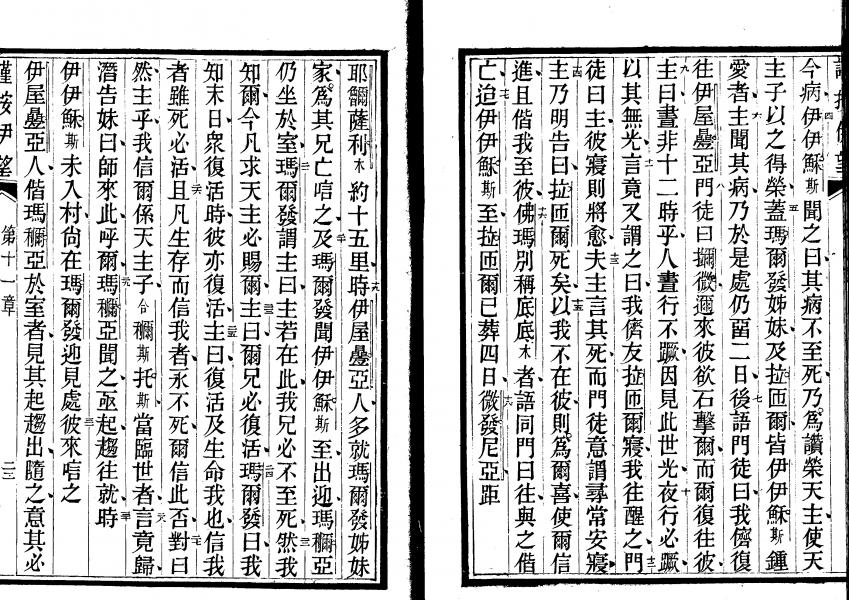 今病伊伊穌斯聞之曰其病不至死乃爲讚榮天主使天
主子以之得榮蓋瑪爾發姊妹及拉匝爾皆伊伊穌斯鍾
愛者主聞其病乃於是處仍畱二日後語門徒曰我儕復
往伊屋疊亞門徒曰擱微邇來彼欲石擊爾而爾復往彼
主曰晝非十二時乎人晝行不蹶因見此世光夜行必蹶
以其無光言竟又謂之曰我儕友拉匝爾寢我往醒之門
徒曰主彼寢則將愈夫主言其死而門徒意謂尋常安寢
主乃明告曰拉匝爾死矣以我不在彼則爲爾喜使爾信
進且偕我至彼佛瑪別稱底底木者語同門曰往與之偕
亡迨伊伊穌斯至拉匝爾已葬四日微發尼亞距
耶薩利木約十五里時伊屋疊亞人多就瑪爾發姊妹
家爲其兄亡唁之及瑪爾發聞伊伊穌斯至出迎瑪穪亞
仍坐於室瑪爾發謂主曰主若在此我兄必不至死然我
知爾今凡求天主必賜爾主曰爾兄必復活瑪爾發曰我
知末日衆復活時彼亦復活主曰復活及生命我也信我
者雖死必活且凡生存而信我者永不死爾信此否對曰
然主乎我信爾係天主子合穪斯托斯當臨世者言竟歸
潛告妹曰師來此呼爾瑪穪亞聞之亟起趨往就時
伊伊穌斯未入村尙在瑪爾發迎見處彼來唁之
伊屋疊亞人偕瑪穪亞於室者見其起趨出隨之意其必
第十一章
二三